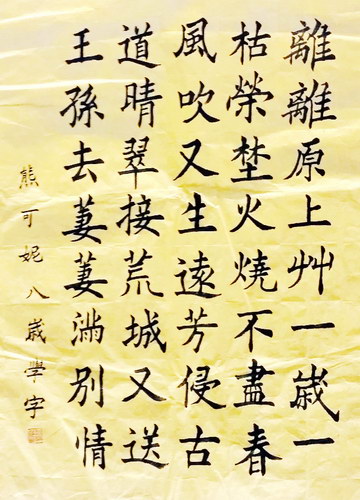 離離原上艸一歲一
枯榮埜火燒不盡春
風吹又生遠芳侵古
道晴翠接荒城又送
王孫去萋萋滿別情
熊可妮八歲學字